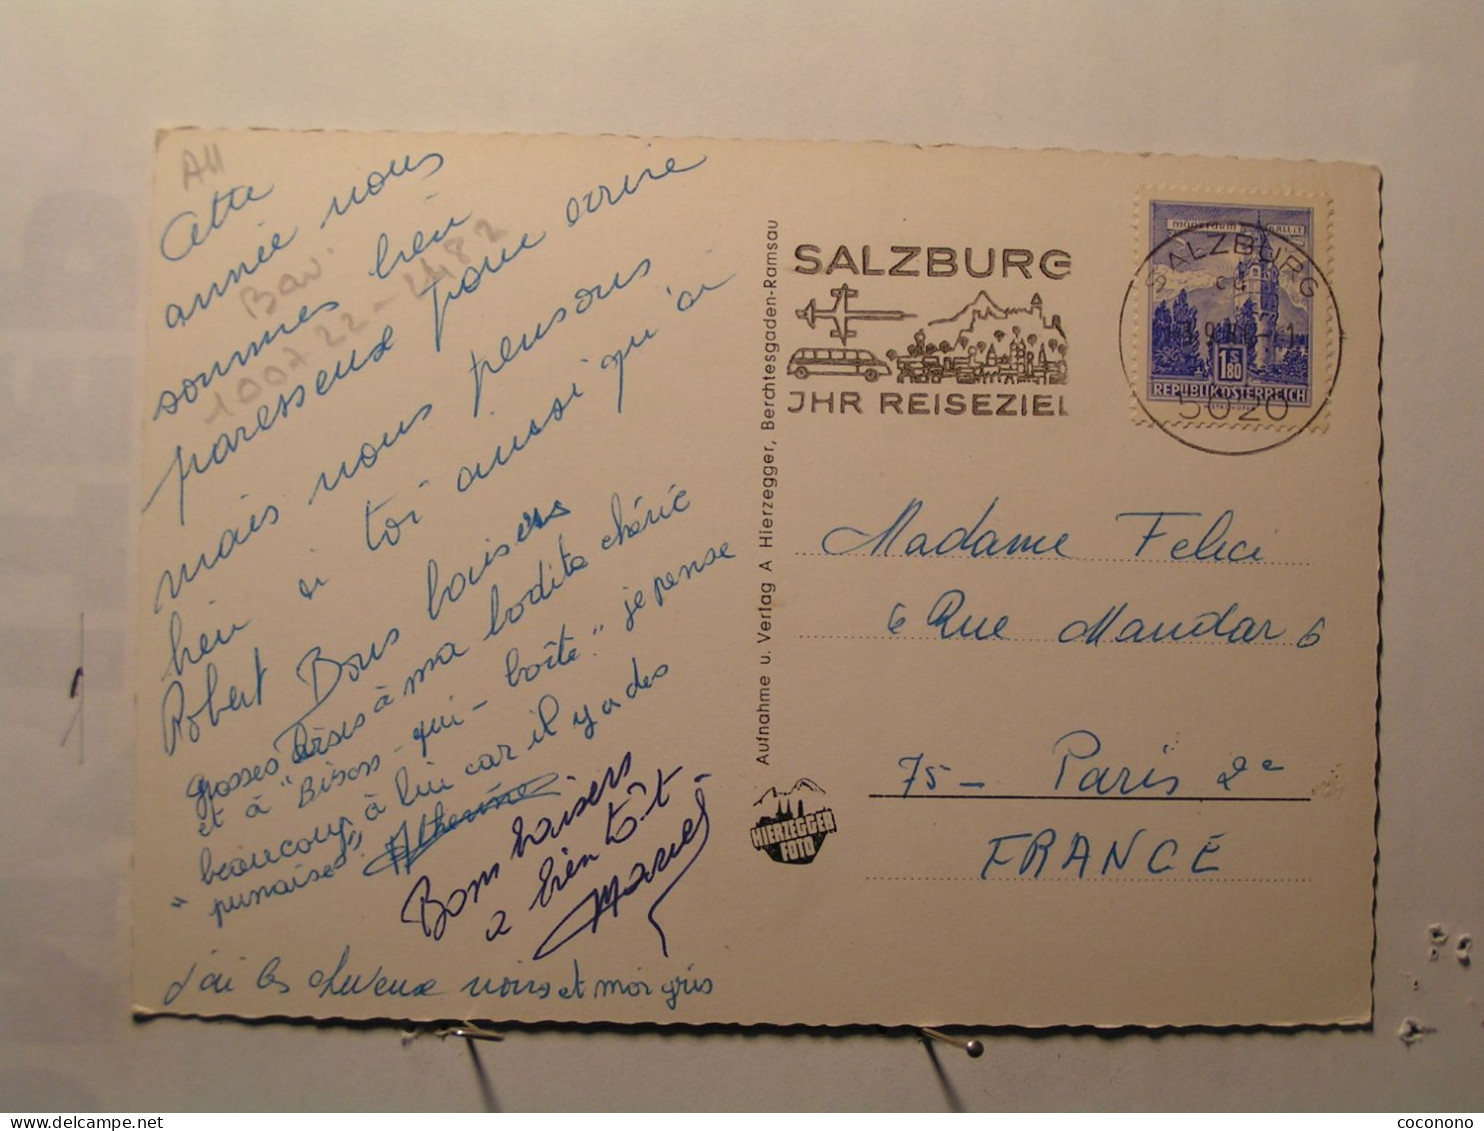 All
Cette
année nous
sommes bien
paresseux pour écrire
mais nous pensons
bien à toi ainsi qu'à
Robert Bons baisers
grosses bises à ma bodita chérie
et à "Bisoss-qui-boîte" je pense
beaucoup à lui car il y a des
"punaises"
Bons baisers
a bientôt
Marcel
j'ai les cheveux noirs et moi gris
Bav.
100722-2482
Aufnahme u. Verlag A Hierzegger, Berchtesgaden-Ramsau
HIERZEGGER
FOTO
SALZBURG
JHR REISEZIEL
SALZBURG
5020
1.80
REPUBLIK ÖSTERREICH
Madame Felici
6 Rue Mandar 6
75 - Paris 2e
FRANCE
coconono